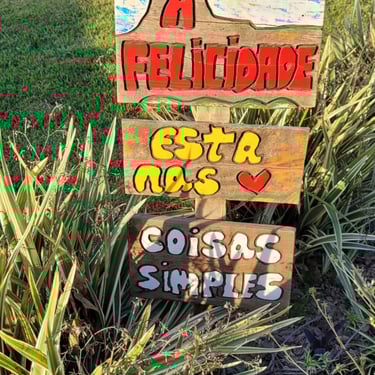 A
FELICIDADE
ESTA
NAS
COISAS
SIMPLES